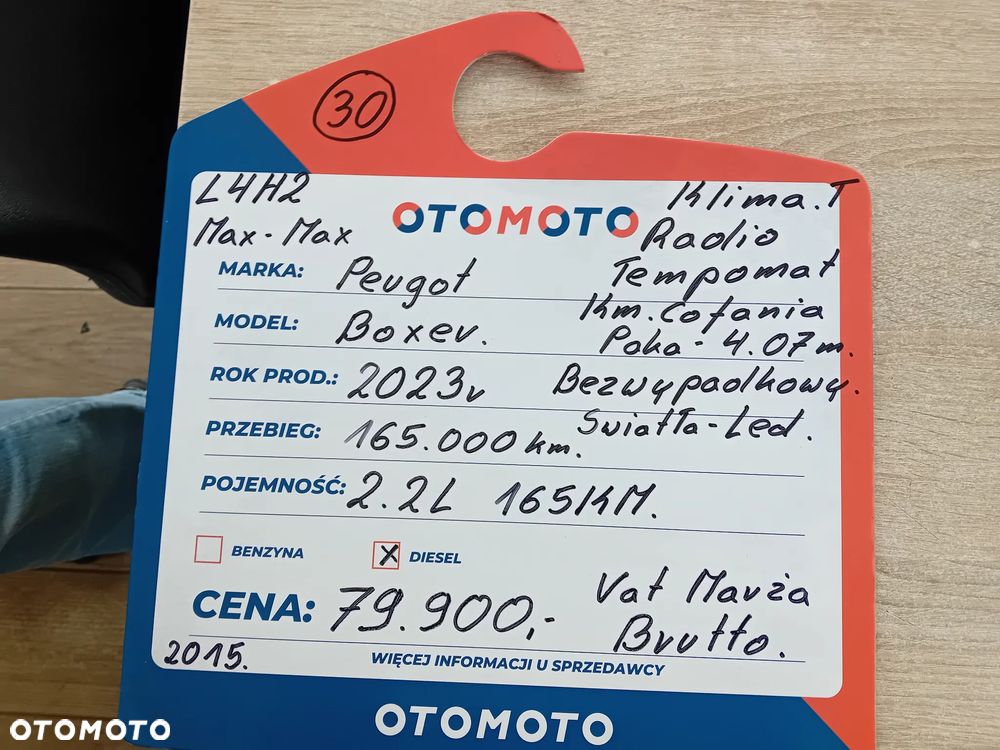 30
L4H2
Max-Max
OTOMOTO
Klima.T
Radio
Tempomat
Km. Cofania
Paka - 4.07m.
Bezwypadkowy.
Swiatła-Led.
MARKA: Peugot
MODEL: Boxer.
ROK PROD.: 2023r
PRZEBIEG: 165.000 km.
POJEMNOŚĆ: 2.2L 165KM.
BENZYNA X DIESEL
CENA: 79.900,-
Vat Marża
Brutto.
2015.
WIĘCEJ INFORMACJI U SPRZEDAWCY
OTOMOTO
OTOMOTO